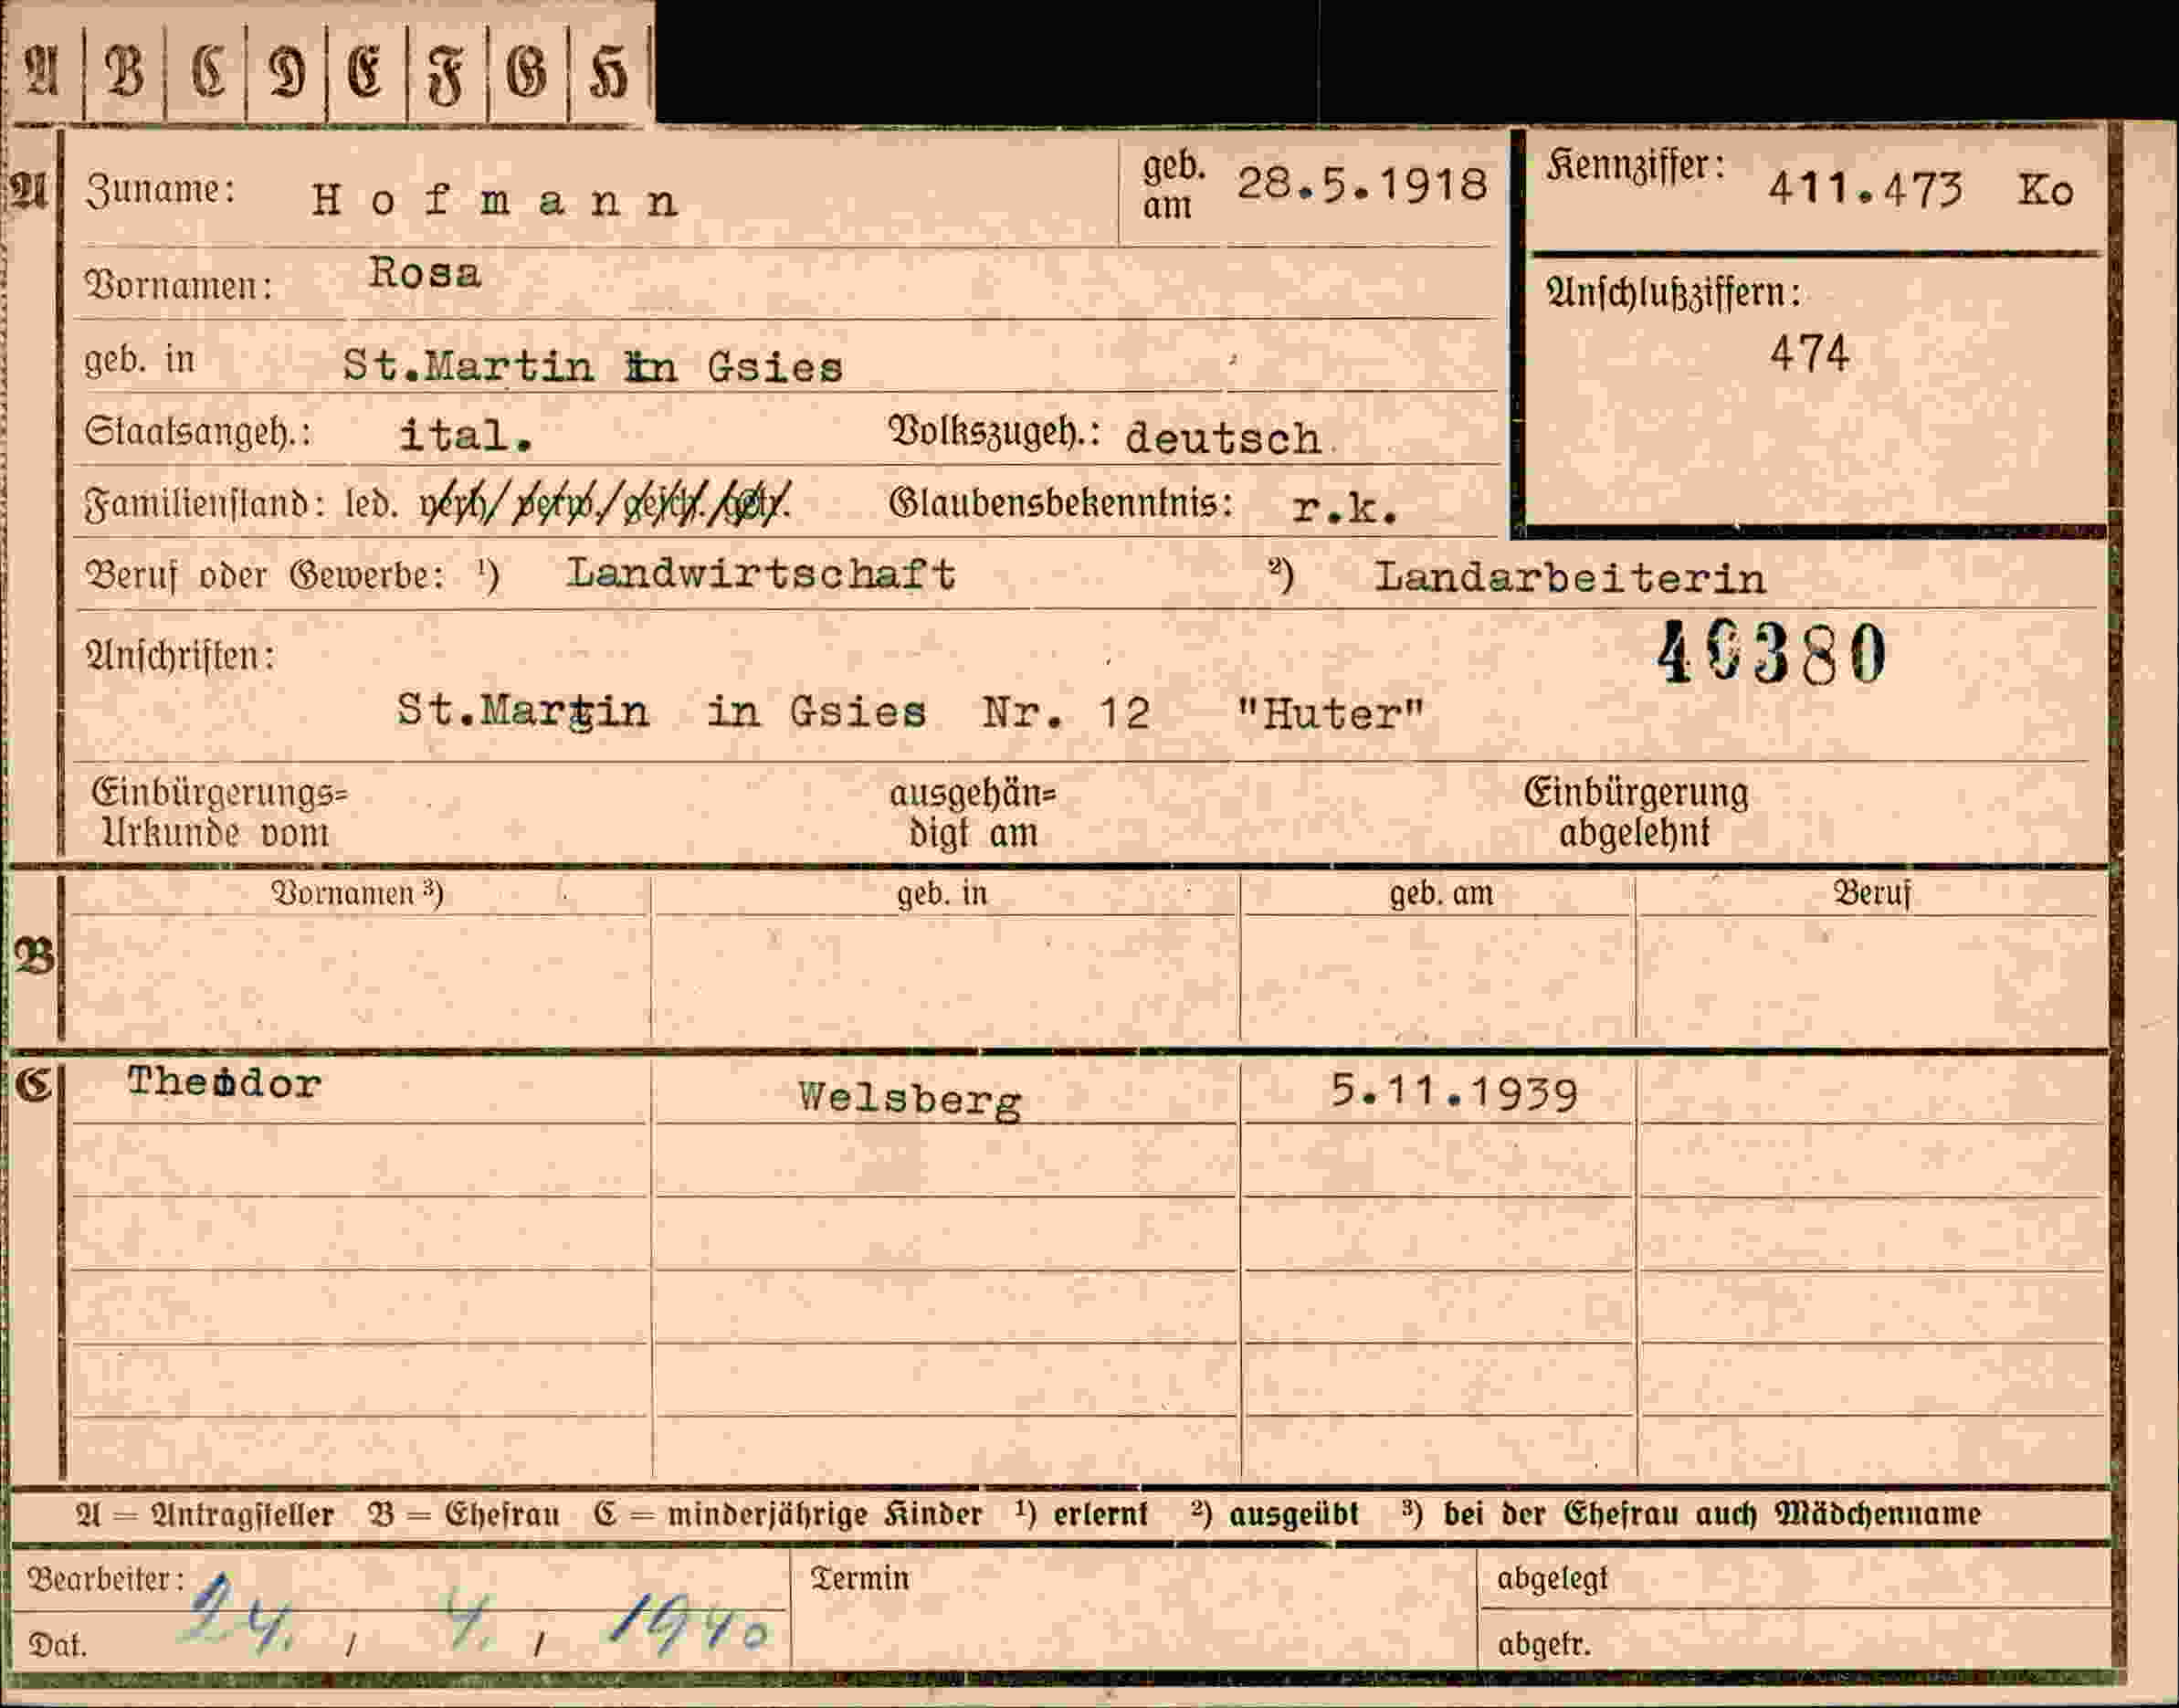 A B C D E F G H
A Zuname: Hofmann geb. am 28.5.1918 Kennziffer: 411.473 Ko
Vornamen: Rosa
Anschlußziffern:
474
geb. in St.Martin in Gsies
Staatsangeh.: ital. Volkszugeh.: deutsch
Familienstand: led. verh/ verw./gesch./get. Glaubensbekenntnis: r.k.
Beruf oder Gewerbe: ¹) Landwirtschaft ²) Landarbeiterin
Anschriften: 40380
St.Martin in Gsies Nr. 12 "Huter"
Einbürgerungs= ausgehän= Einbürgerung
Urkunde vom digt am abgelehnt
Vornamen ³) geb. in geb. am Beruf
B
C Theodor Welsberg 5.11.1939
A = Antragsteller B = Ehefrau C = minderjährige Kinder ¹) erlernt ²) ausgeübt ³) bei der Ehefrau auch Mädchenname
Bearbeiter: Termin abgelegt
Dat. 24. / 4. / 1940 abgetr.